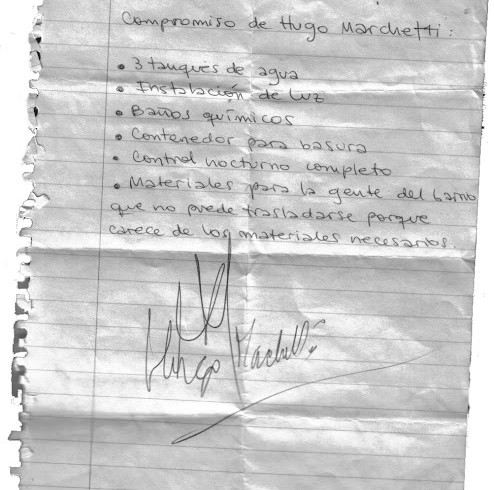 Compromiso de Hugo Marchetti:
• 3 tanques de agua
• Instalación de luz
• Baños químicos
• Contenedor para basura
• Control nocturno completo
• Materiales para la gente del
que no puede trasladarse porque
carece de los materiales necesarios.
Hugo Marchetti